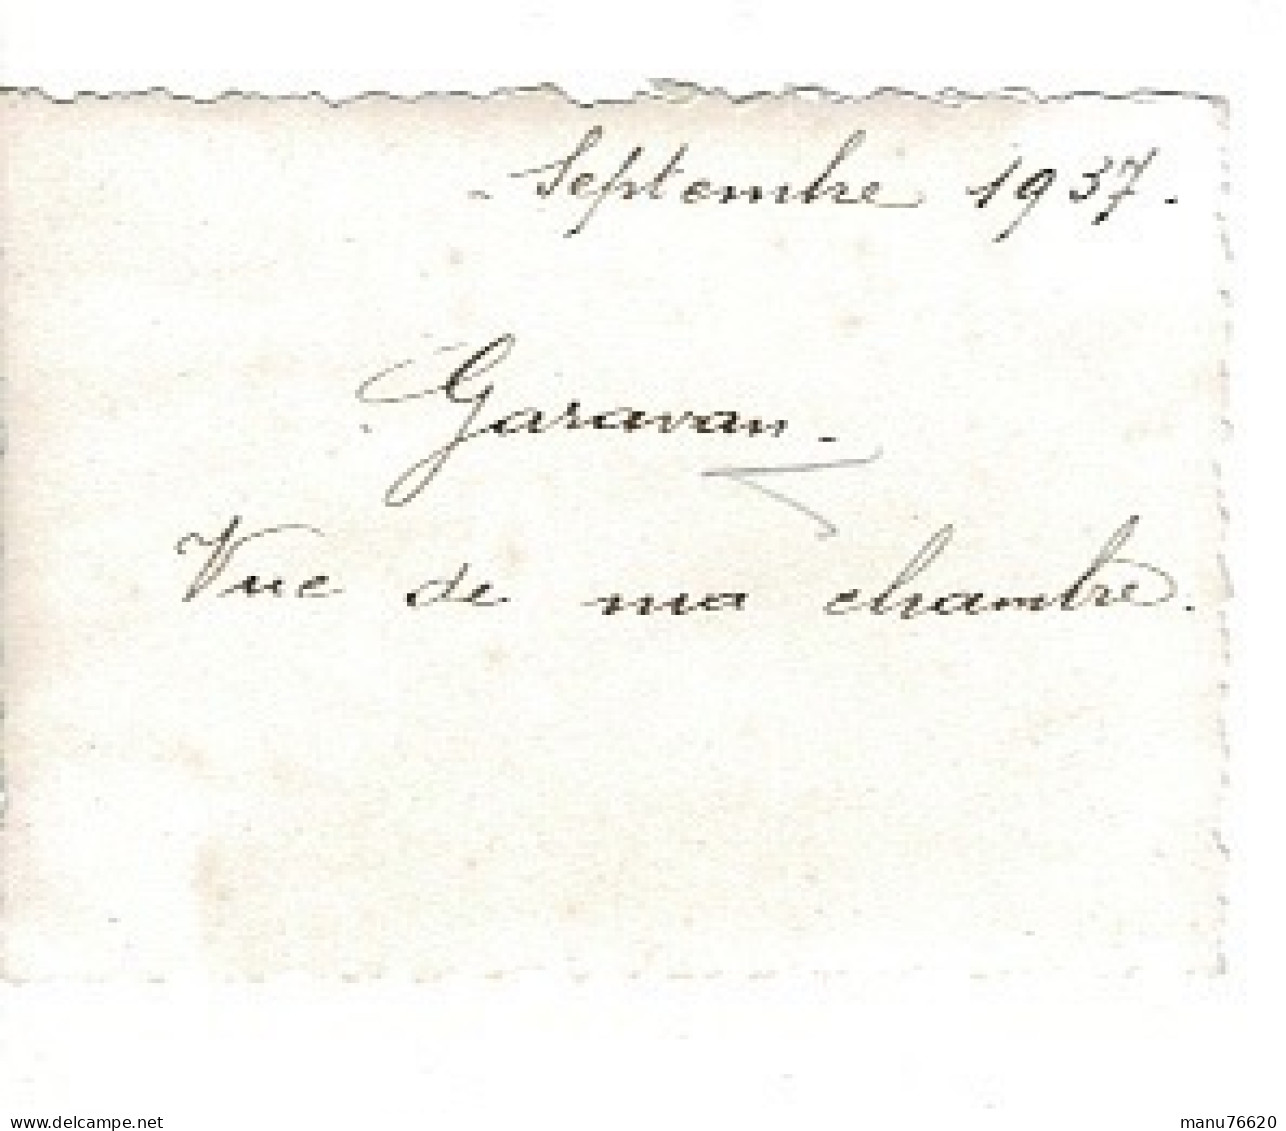 - Septembre 1937.
Garavan -
Vue de ma chambre.
delcampe.net
manu76620